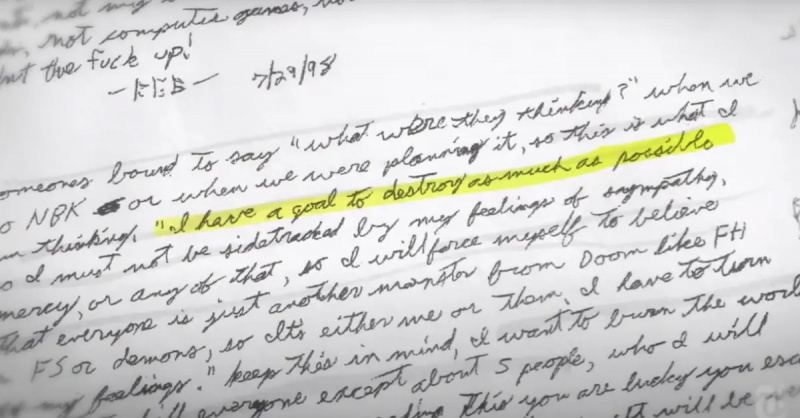 not my
not computer games, no
the fuck up!
-REB- 7/29/98
omeones bound to say "what were they thinking?" when we
o NBK or when we were planning it, so this is what I
m thinking. "I have a goal to destroy as much as possible
so I must not be sidetracked by my feelings of sympathy,
mercy, or any of that, so I will force myself to believe
that everyone is just another monster from Doom like FH
FS or demons, so Its either me or them. I have to turn
my feelings." keep this in mind, I want to burn the worl
kill everyone except about 5 people, who I will
this you are lucky you esca
will be